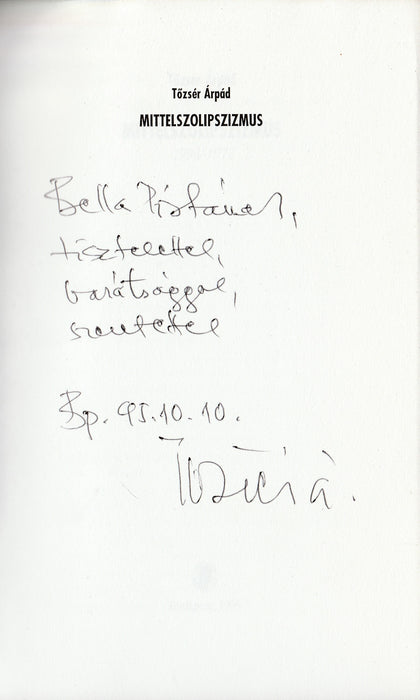 Tőzsér Árpád
MITTELSZOLIPSZIZMUS
Bella Pistának,
tisztelettel,
barátsággal,
szeretettel
Bp. 95.10.10.
Tőzsér Á.